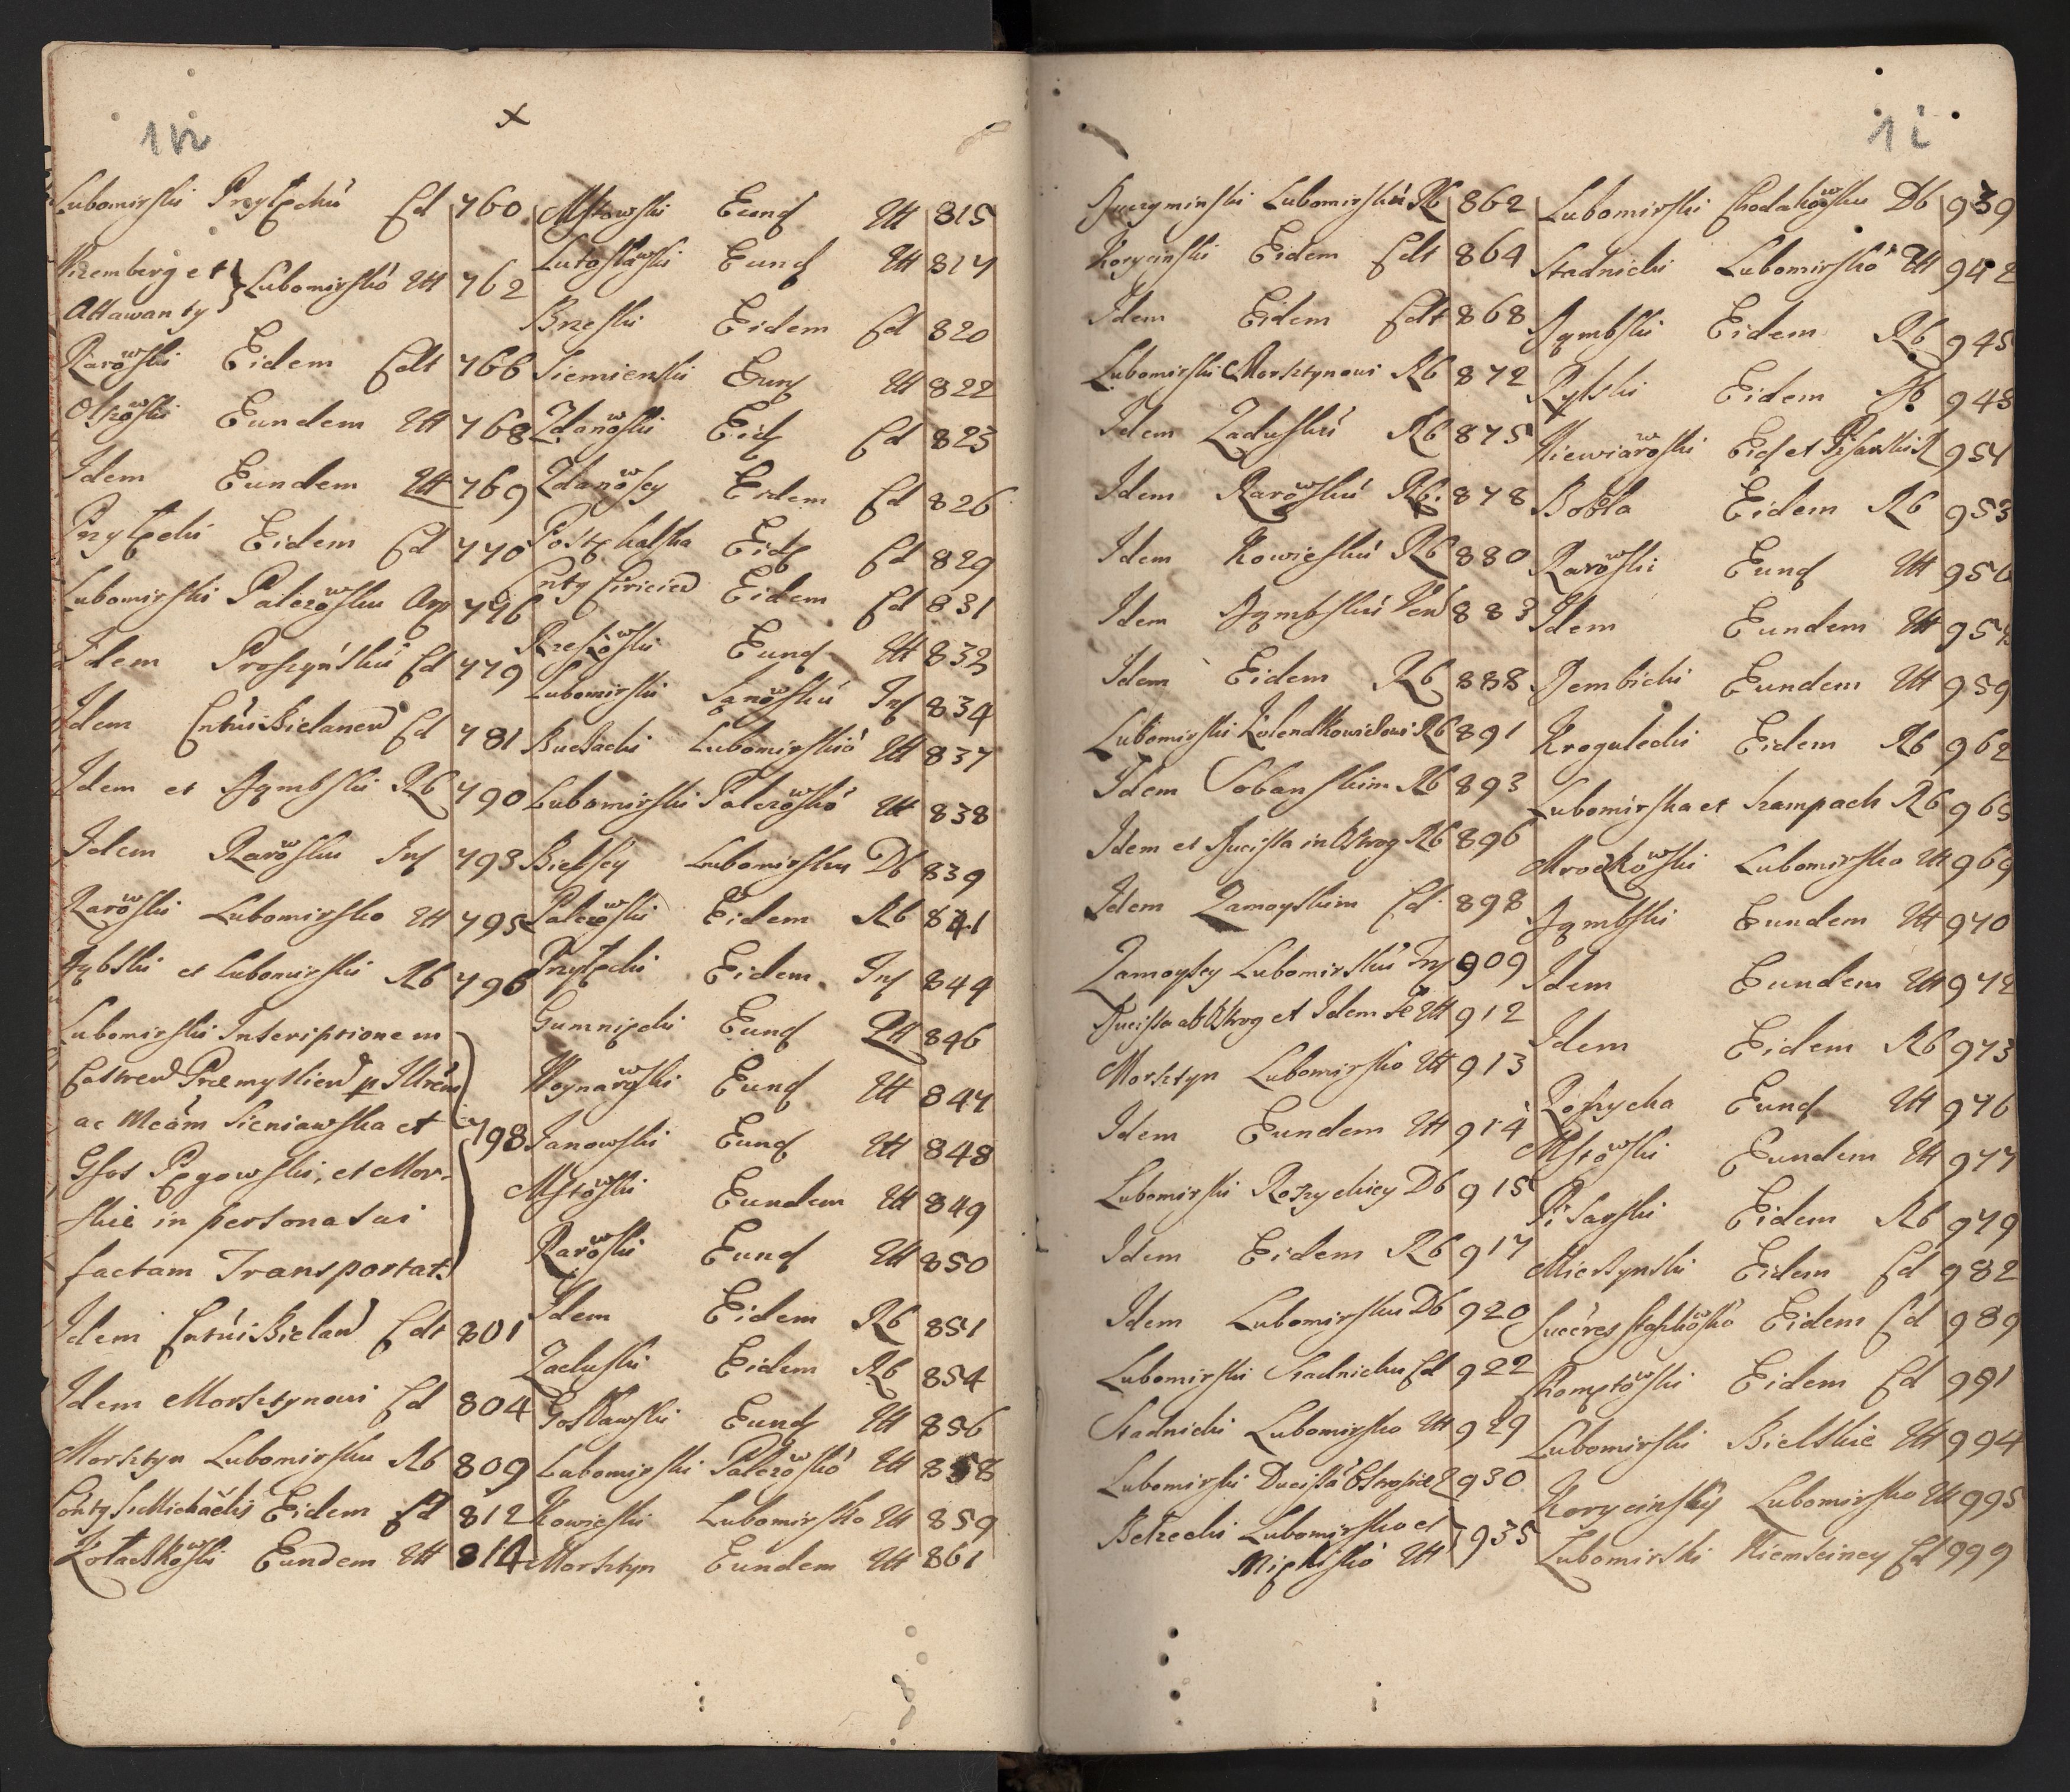 1h
x
Lubomirski Przyłęcku Cd 760
Wizemberg et
Attawanty } Lubomirskó Utt 762
Rarowski Eidem Cdt 766
Olszowski Eundem Utt 768
Idem Eundem Utt 769
Przyłęcki Eidem Cd 770
Lubomirski Palczowsku 776
Idem Proszyńsku Cd 779
Idem Bielanen Cd 781
Idem et Dęmbski Rb 790
Idem Rarowsku Ins 793
Rarowski Lubomirsko Utt 795
Dębski et Lubomirski Rb 796
Lubomirski Inscriptionem
Castren Præmyslien p Illrém
ac Mcám Sieniawska et
Gsos Pęgowski, et Mor-
skie in persona sui
factam Transportat. } 798
Idem Bielan Cdt 801
Idem Morsztynowi Cd 804
Morsztyn Lubomirsku Rb 809
S Michaelis Eidem Cd 812
Eundem Utt 814
Mstowski Eund Utt 815
Lutosławski Eund Utt 817
Brzeski Eidem Cd 820
Siemienski Eund Utt 822
Zdanowski Eid Cd 823
Zdanowscy Eidem Cd 826
Postękalska Eid Cd 829
Eidem Cd 831
Eund Utt 832
Lubomirski Janowsku Ins 834
Lubomirskió Utt 837
Lubomirski Palczowskó Utt 838
Bielscy Lubomirsku Db 839
Palczowski Eidem Rb 841
Przyłęcki Eidem Ins 844
Gumnięcki Eund Utt 846
Woynarowski Eund Utt 847
Janowski Eund Utt 848
Mstowski Eundem Utt 849
Rarowski Eund Utt 850
Idem Eidem Rb 851
Załuski Eidem Rb 854
Gosławski Eund Utt 856
Lubomirski Palczowskó Utt 858
Kowieski Lubomirsko Utt 859
Morsztyn Eundem Utt 861
1i
Lubomirskiú Rb 862
Korycinski Eidem Cdt 864
Idem Eidem Cdt 868
Lubomirski Morsztynowi Rb 872
Idem Załuskú Rb 875
Idem Rarowskú Rb 878
Idem Kowieskú Rb 880
Idem Dęmbskú 883
Idem Eidem Rb 888
Lubomirski Rb 891
Idem Sobanskim Rb 893
Idem et Ducissa in Ostrog Rb 896
Idem Zamoyskim Cd 898
Zamoyscy Lubomirskú Ins 909
Ducissa ab Ostrog et Idem Utt 912
Morsztyn Lubomirsko Utt 913
Idem Eundem Utt 914
Lubomirski Rozyckiey Db 915
Idem Eidem Rb 917
Idem Lubomirsku Db 920
Lubomirski Stadnicku Cd 922
Stadnicki Lubomirsko Utt 929
Lubomirski Ducissá 930
Betzecki Lubomirsko et
Utt } 935
Lubomirski Chodakowsku Db 939
Stadnicki Lubomirskó Utt 942
Dęmbski Eidem Rb 945
Rylski Eidem 948
Niewiarowski Eid et 951
Bobla Eidem Rb 953
Rarowski Eund Utt 956
Idem Eundem Utt
Dembicki Eundem Utt 959
Krogulecki Eidem Rb 962
Lubomirska et Szampach Rb 965
Mroczkowski Lubomirsko Utt 969
Dęmbski Eundem Utt 970
Idem Eundem Utt 972
Idem Eidem Rb 973
Rozycka Eund Utt 976
Mstowski Eundem Utt 977
Pisarski Eidem Rb 979
Eidem Cd 982
Eidem Cd 989
Chomętowski Eidem Cd 991
Lubomirski Bielskie Utt 994
Korycinsky Lubomirsko Utt 995
Lubomirski Niemsciney Cd 999